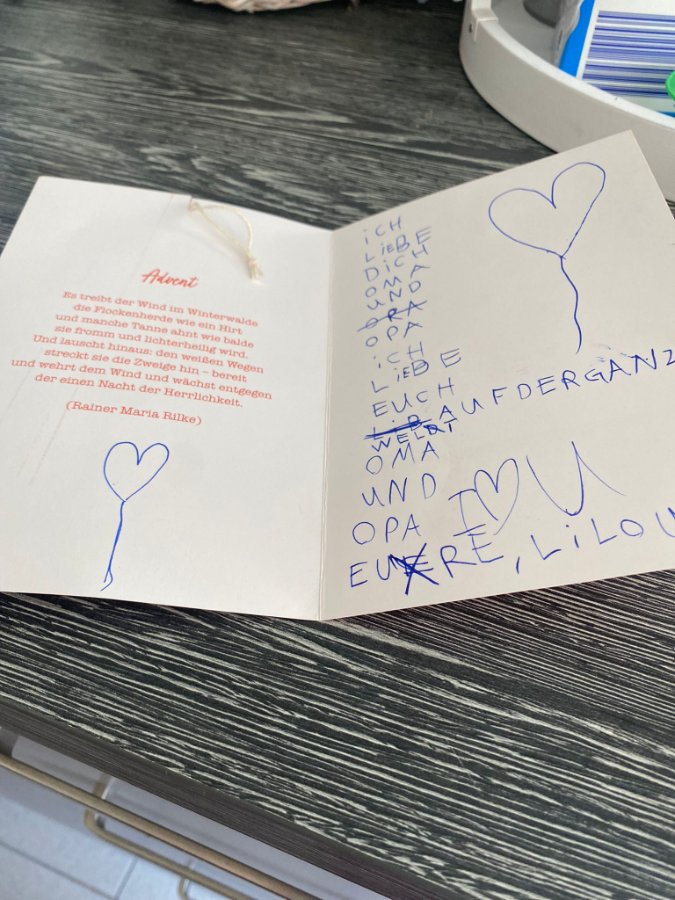 Advent
Es treibt der Wind im Winterwalde
die Flockenherde wie ein Hirt
und manche Tanne ahnt wie balde
sie fromm und lichterheilig wird.
Und lauscht hinaus: den weißen Wegen
streckt sie die Zweige hin – bereit
und wehrt dem Wind und wächst entgegen
der einen Nacht der Herrlichkeit.
(Rainer Maria Rilke)
iCH
LiEBE
DiCH
OMA
UND
OPA
iCH
LiEBE
EUCH AUFDERGANZ
WELT
OMA
UND
OPA I U
EURE, LiLOU